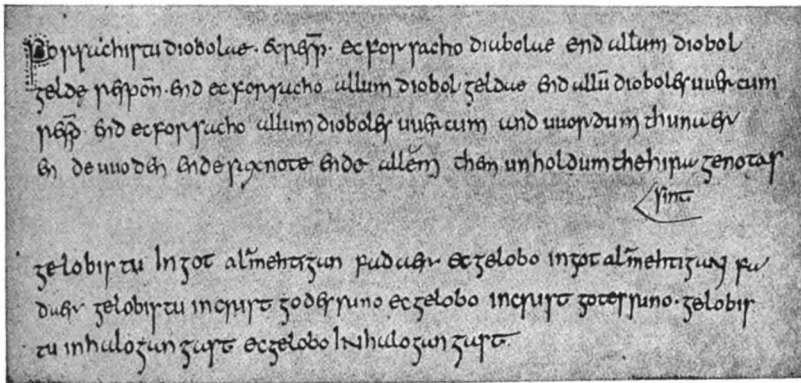 forsachistu diobolae. & resp̄. ec forsacho diabolae end allum diobol
gelde respōn. end ec forsacho allum diobol geldae end allū dioboles uuercum
resp̄. end ec forsacho allum dioboles uuercum and uuordum thunaer
en de uuoden ende saxnote ende allem them unholdum the hira genotas
sint
gelobistu in got alamehtigan fadaer ec gelobo in got alamehtigan fa
daer gelobistu in crist godes suno ec gelobo in crist gotes suno. gelobis
tu in halogan gast ec gelobo in halogan gast.